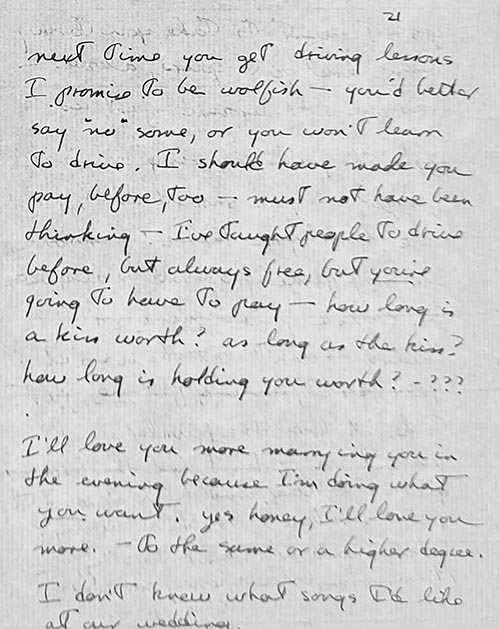 21
next time you get driving lessons
I promise to be wolfish – you'd better
say "no" some, or you won't learn
to drive. I should have made you
pay, before, too – must not have been
thinking – I've taught people to drive
before, but always free, but you're
going to have to pay – how long is
a kiss worth? as long as the kiss?
how long is holding you worth? - ???
I'll love you more marrying you in
the evening because I'm doing what
you want. yes honey, I'll love you
more. – to the same or a higher degree.
I don't know what songs I'd like
at our wedding.